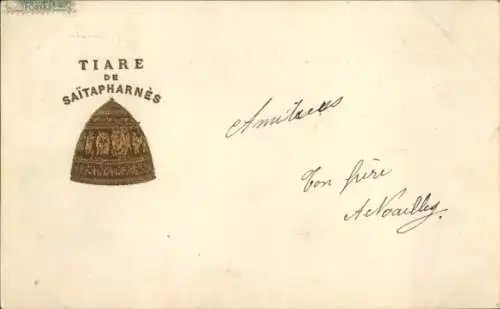 TIARE
DE
SAÏTAPHARNÈS
Amitiés
Ton frère
A Noailles